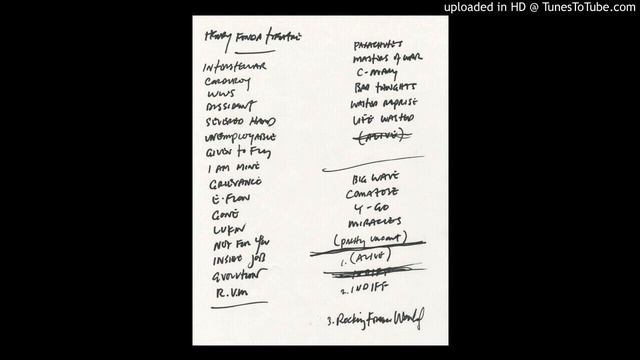 uploaded in HD @ TunesToTube.com
HENRY FONDA THEATRE
INTERSTELLAR
CORDUROY
WWS
DISSIDENT
SEVERED HAND
UNEMPLOYABLE
GIVEN to FLY
I AM MINE
GRIEVANCE
E. FLOW
GONE
LUKIN
NOT FOR YOU
INSIDE JOB
EVOLUTION
R.V.M
PARACHUTES
MASTERS OF WAR
C-MARY
BAD THOUGHTS
WASTED REPRISE
LIFE WASTED
(ALIVE)
BIG WAVE
COMATOSE
Y-GO
MIRACLES
(pretty vacant)
1. (ALIVE)
INDIFF
2. INDIFF
3. Rocking Free World